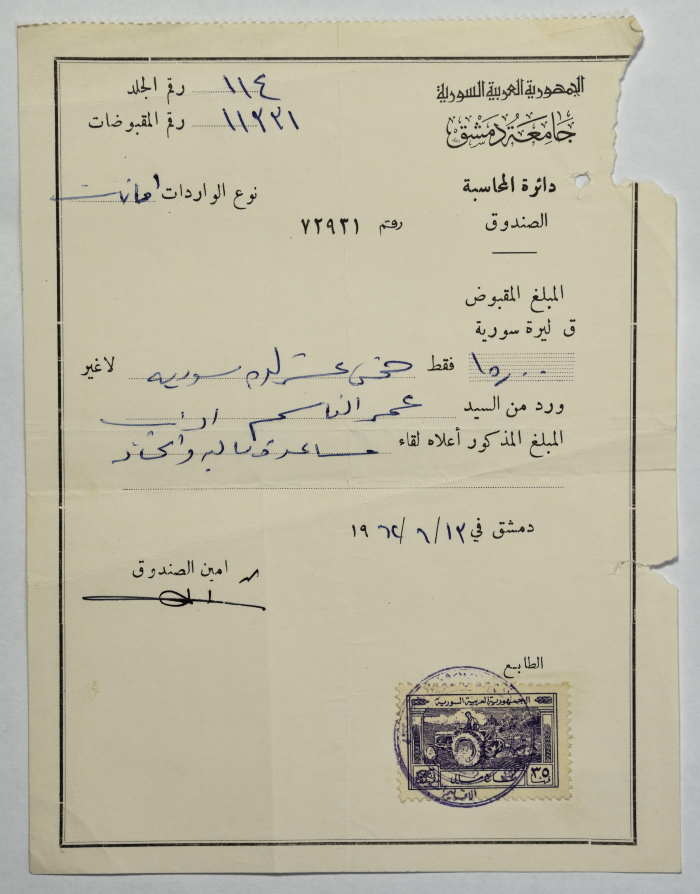 الجمهورية العربية السورية
جامعة دمشق
دائرة المحاسبة
الصندوق
رقم الجلد ١١٤
رقم المقبوضات ١١٢٢١
نوع الواردات امانات
رقم ٧٢٩٣١
المبلغ المقبوض
ق ليرة سورية
١٥٫٠٠ فقط خمس عشر ليره سوريه لاغير
ورد من السيد عمر القاسم
المبلغ المذكور أعلاه لقاء مساعدة ماليه
دمشق في ١٣/٦/١٩٦٢
امين الصندوق
الطابع
الجمهورية العربية السورية
٣٥